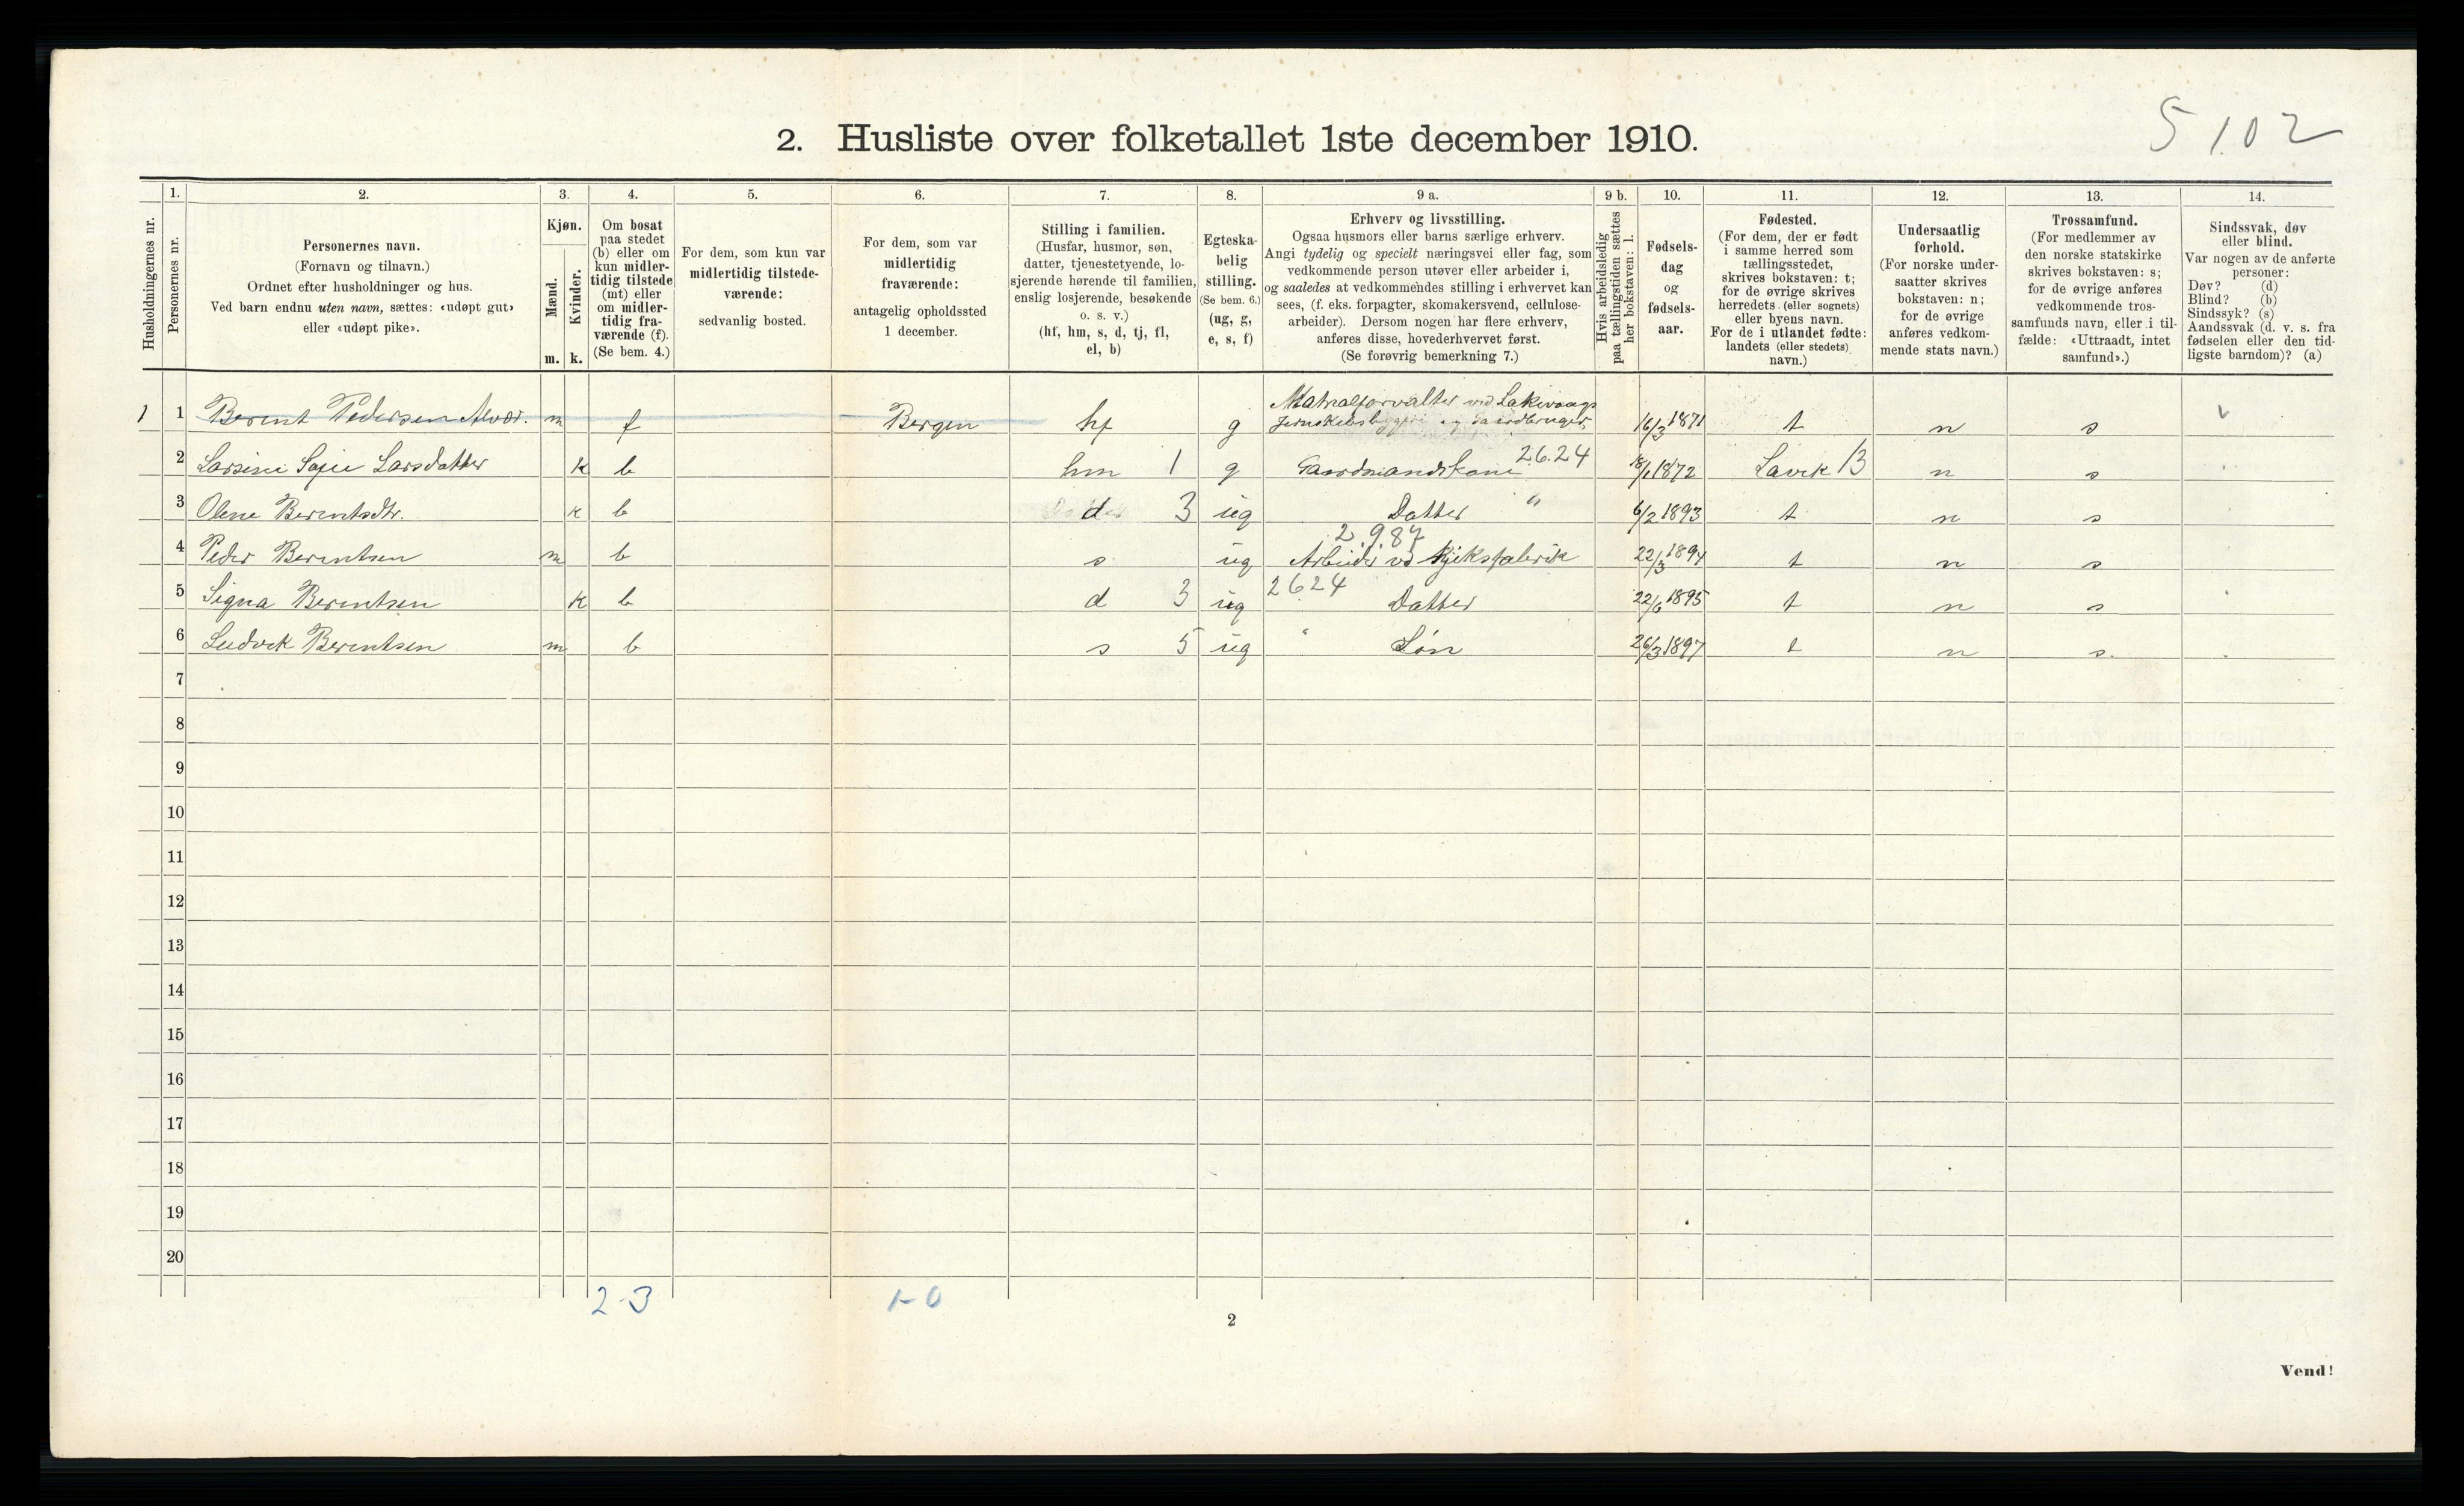 5102
2. Husliste over folketallet 1ste december 1910.
Husholdningernes nr.
1.
Personernes nr.
2.
Personernes navn.
(Fornavn og tilnavn.)
Ordnet efter husholdninger og hus.
Ved barn endnu uten navn, sættes: «udøpt gut»
eller «udøpt pike».
3.
Kjøn.
Mænd.
Kvinder.
m. k.
4.
Om bosat
paa stedet
(b) eller om
kun midler-
tidig tilstede
(mt) eller
om midler-
tidig fra-
værende (f).
(Se bem. 4.)
5.
For dem, som kun var
midlertidig tilstede-
værende:
sedvanlig bosted.
6.
For dem, som var
midlertidig
fraværende:
antagelig opholdssted
1 december.
7.
Stilling i familien.
(Husfar, husmor, søn,
datter, tjenestetyende, lo-
sjerende hørende til familien,
enslig losjerende, besøkende
o. s. v.)
(hf, hm, s, d, tj, fl,
el, b)
8.
Egteska-
belig
stilling.
(Se bem. 6.)
(ug, g,
e, s, f)
9 a.
Erhverv og livsstilling.
Ogsaa husmors eller barns særlige erhverv.
Angi tydelig og specielt næringsvei eller fag, som
vedkommende person utøver eller arbeider i,
og saaledes at vedkommendes stilling i erhvervet kan
sees, (f. eks. forpagter, skomakersvend, cellulose-
arbeider). Dersom nogen har flere erhverv,
anføres disse, hovederhvervet først.
(Se forøvrig bemerkning 7.)
9 b.
Hvis arbeidsledig
paa tællingstiden sættes
her bokstaven: l.
10.
Fødsels-
dag
og
fødsels-
aar.
11.
Fødested.
(For dem, der er født
i samme herred som
tællingsstedet,
skrives bokstaven: t;
for de øvrige skrives
herredets (eller sognets)
eller byens navn.
For de i utlandet fødte:
landets (eller stedets)
navn.)
12.
Undersaatlig
forhold.
(For norske under-
saatter skrives
bokstaven: n;
for de øvrige
anføres vedkom-
mende stats navn.)
13.
Trossamfund.
(For medlemmer av
den norske statskirke
skrives bokstaven: s;
for de øvrige anføres
vedkommende tros-
samfunds navn, eller i til-
fælde: «Uttraadt, intet
samfund».)
14.
Sindssvak, døv
eller blind.
Var nogen av de anførte
personer:
Døv? (d)
Blind? (b)
Sindssyk? (s)
Aandssvak (d. v. s. fra
fødselen eller den tid-
ligste barndom)? (a)
1 1 Berent Pedersen Alvær. m f Bergen hf g Matrialforvalter ved Laksevaags
Jernskibsbyggeri og Gaardbruger, 16/3 1871 t n s
2 Larsine Sofie Larsdatter k b hm 1 g Gaardmandskone 26.24 18/1 1872 Lavik 13 n s
3 Olene Berentsdtr. k b d 3 ug Datter " 6/2 1893 t n s
2.9.87
4 Peder Berentsen m b s ug Arbeider vd Kjeksfabrik 22/3 1894 t n s
5 Signa Berentsen k b d 3 ug 2624 Datter 22/6 1895 t n s
6 Ludvik Berentsen m b s 5 ug " Søn 26/3 1897 t n s.
7
8
9
10
11
12
13
14
15
16
17
18
19
20
2-3 1-0
2
Vend!